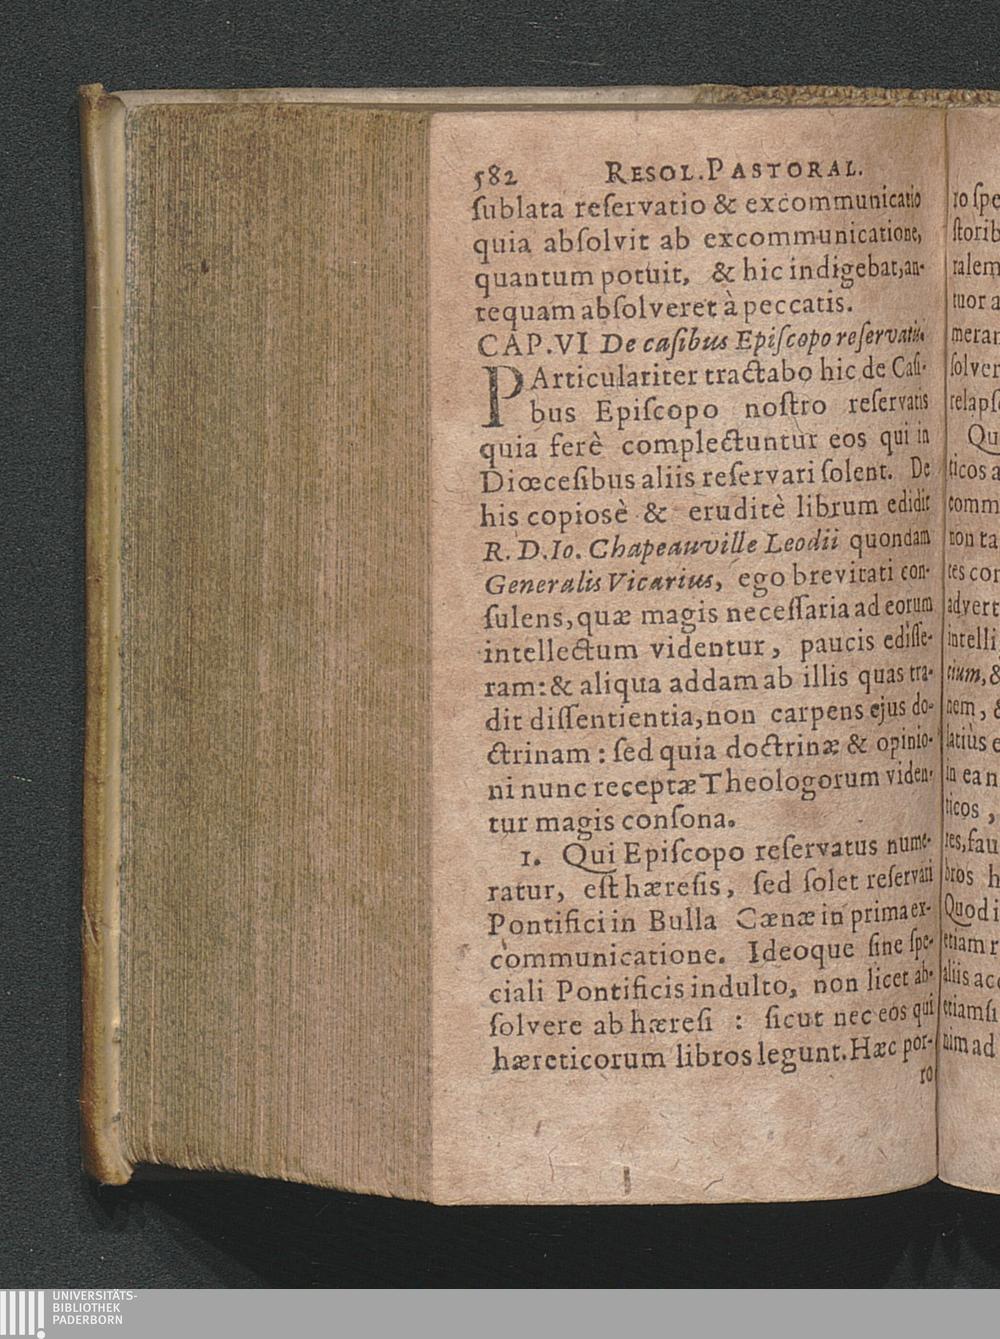 582 RESOL. PASTORAL.
ſublata reſervatio & excommunicatio
quia abſolvit ab excommunicatione,
quantum potuit, & hic indigebat, an-
tequam abſolveret à peccatis.
CAP. VI De caſibus Epiſcopo reſervatis.
PArticulariter tractabo hic de Caſi-
bus Epiſcopo noſtro reſervatis
quia ferè complectuntur eos qui in
Diœceſibus aliis reſervari ſolent. De
his copiosè & eruditè librum edidit
R. D. Io. Chapeauville Leodii quondam
Generalis Vicarius, ego brevitati con-
ſulens, quæ magis neceſſaria ad eorum
intellectum videntur, paucis ediſſe-
ram: & aliqua addam ab illis quas tra-
dit diſſentientia, non carpens ejus do-
ctrinam : ſed quia doctrinæ & opinio-
ni nunc receptæ Theologorum viden-
tur magis conſona.
1. Qui Epiſcopo reſervatus nume-
ratur, eſt hæreſis, ſed ſolet reſervari
Pontifici in Bulla Cænæ in prima ex-
communicatione. Ideoque ſine ſpe-
ciali Pontificis indulto, non licet ab-
ſolvere ab hæreſi : ſicut nec eos qui
hæreticorum libros legunt. Hæc por-
ro
ro ſpe
ſtorib
ralem
tuor a
meran
ſolver
relapſ
Qu
ticos a
comm
non ta
tes con
advert
intelli
cium, &
nem, &
latiùs e
in ea n
ticos ,
res, fau
bros h
Quod i
etiam r
aliis acc
etiamſi
nim ad
UNIVERSITÄTS-
BIBLIOTHEK
PADERBORN